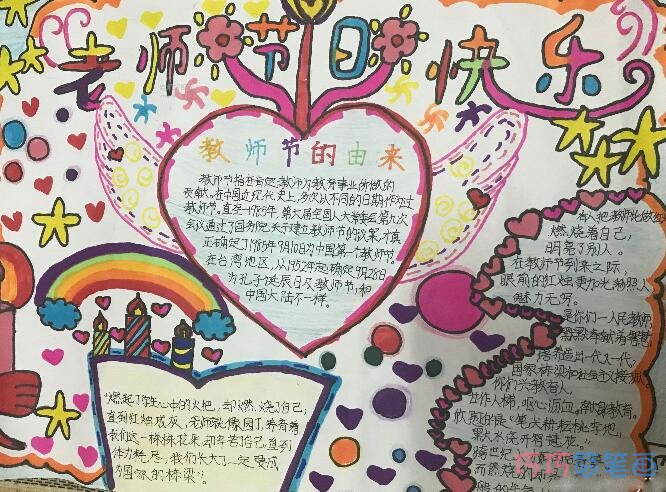 老师节日快乐
教师节的由来
教师节旨在肯定教师为教育事业所做的
贡献。在中国近现代史上,多次以不同的日期作为过
教师节。直至1985年,第六届全国人大常委会第九次
会议通过了国务院关于建立教师节的议案,才真
正确定了1985年9月10日为中国第一个教师节。
在台湾地区,从1952年起确定9月28日
为孔子诞辰日及教师节,和
中国大陆不一样。
燃起了学生心中的火把,却燃烧了自己,
直到红烛成灰,老师就像园丁,养育着
我们这一株株花朵,却辛苦自己直到
体力耗尽,我们长大了一定要成
为国家的栋梁。
有人把教师比做
燃烧着自己,
明亮了别人。
在教师节到来之际,
眼前的红烛更加光彩照人
魅力无穷。
是你们一人民教师
默默奉献着智慧
培养造出一代又一代,
国家栋梁和社会主义接班
你们兴教育人
甘作人梯,呕心沥血
笔天耕耘桃李地,
墨水浇开智慧花